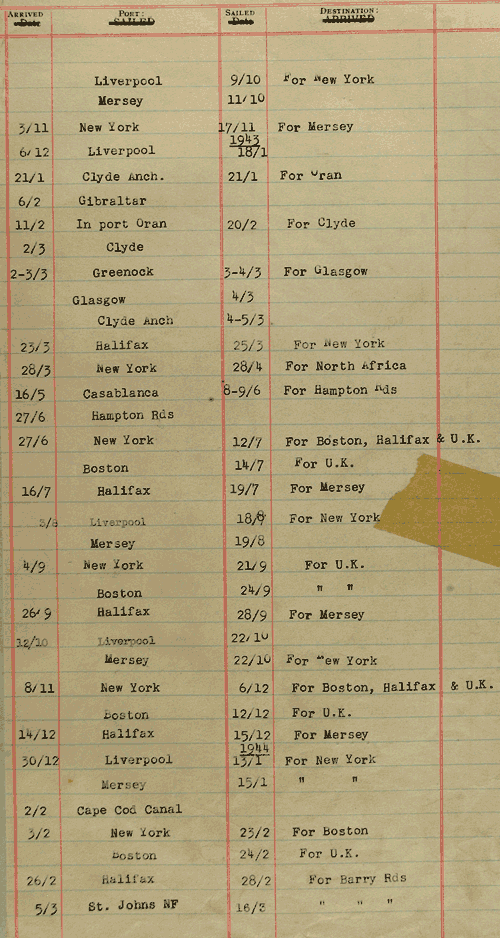 ARRIVED PORT: SAILED DESTINATION:
Date SAILED Date ARRIVED
Liverpool 9/10 For New York
Mersey 11/10
3/11 New York 17/11 For Mersey
1943
6/12 Liverpool 18/1
21/1 Clyde Anch. 21/1 For Oran
6/2 Gibraltar
11/2 In port Oran 20/2 For Clyde
2/3 Clyde
2-3/3 Greenock 3-4/3 For Glasgow
Glasgow 4/3
Clyde Anch 4-5/3
23/3 Halifax 25/3 For New York
28/3 New York 28/4 For North Africa
16/5 Casablanca 8-9/6 For Hampton Rds
27/6 Hampton Rds
27/6 New York 12/7 For Boston, Halifax & U.K.
Boston 14/7 For U.K.
16/7 Halifax 19/7 For Mersey
3/8 Liverpool 18/8 For New York
Mersey 19/8
4/9 New York 21/9 For U.K.
Boston 24/9 " "
26/9 Halifax 28/9 For Mersey
12/10 Liverpool 22/10
Mersey 22/10 For New York
8/11 New York 6/12 For Boston, Halifax & U.K.
Boston 12/12 For U.K.
14/12 Halifax 15/12 For Mersey
1944
30/12 Liverpool 13/1 For New York
Mersey 15/1 " "
2/2 Cape Cod Canal
3/2 New York 23/2 For Boston
Boston 24/2 For U.K.
26/2 Halifax 28/2 For Barry Rds
5/3 St. Johns NF 16/3 " " "